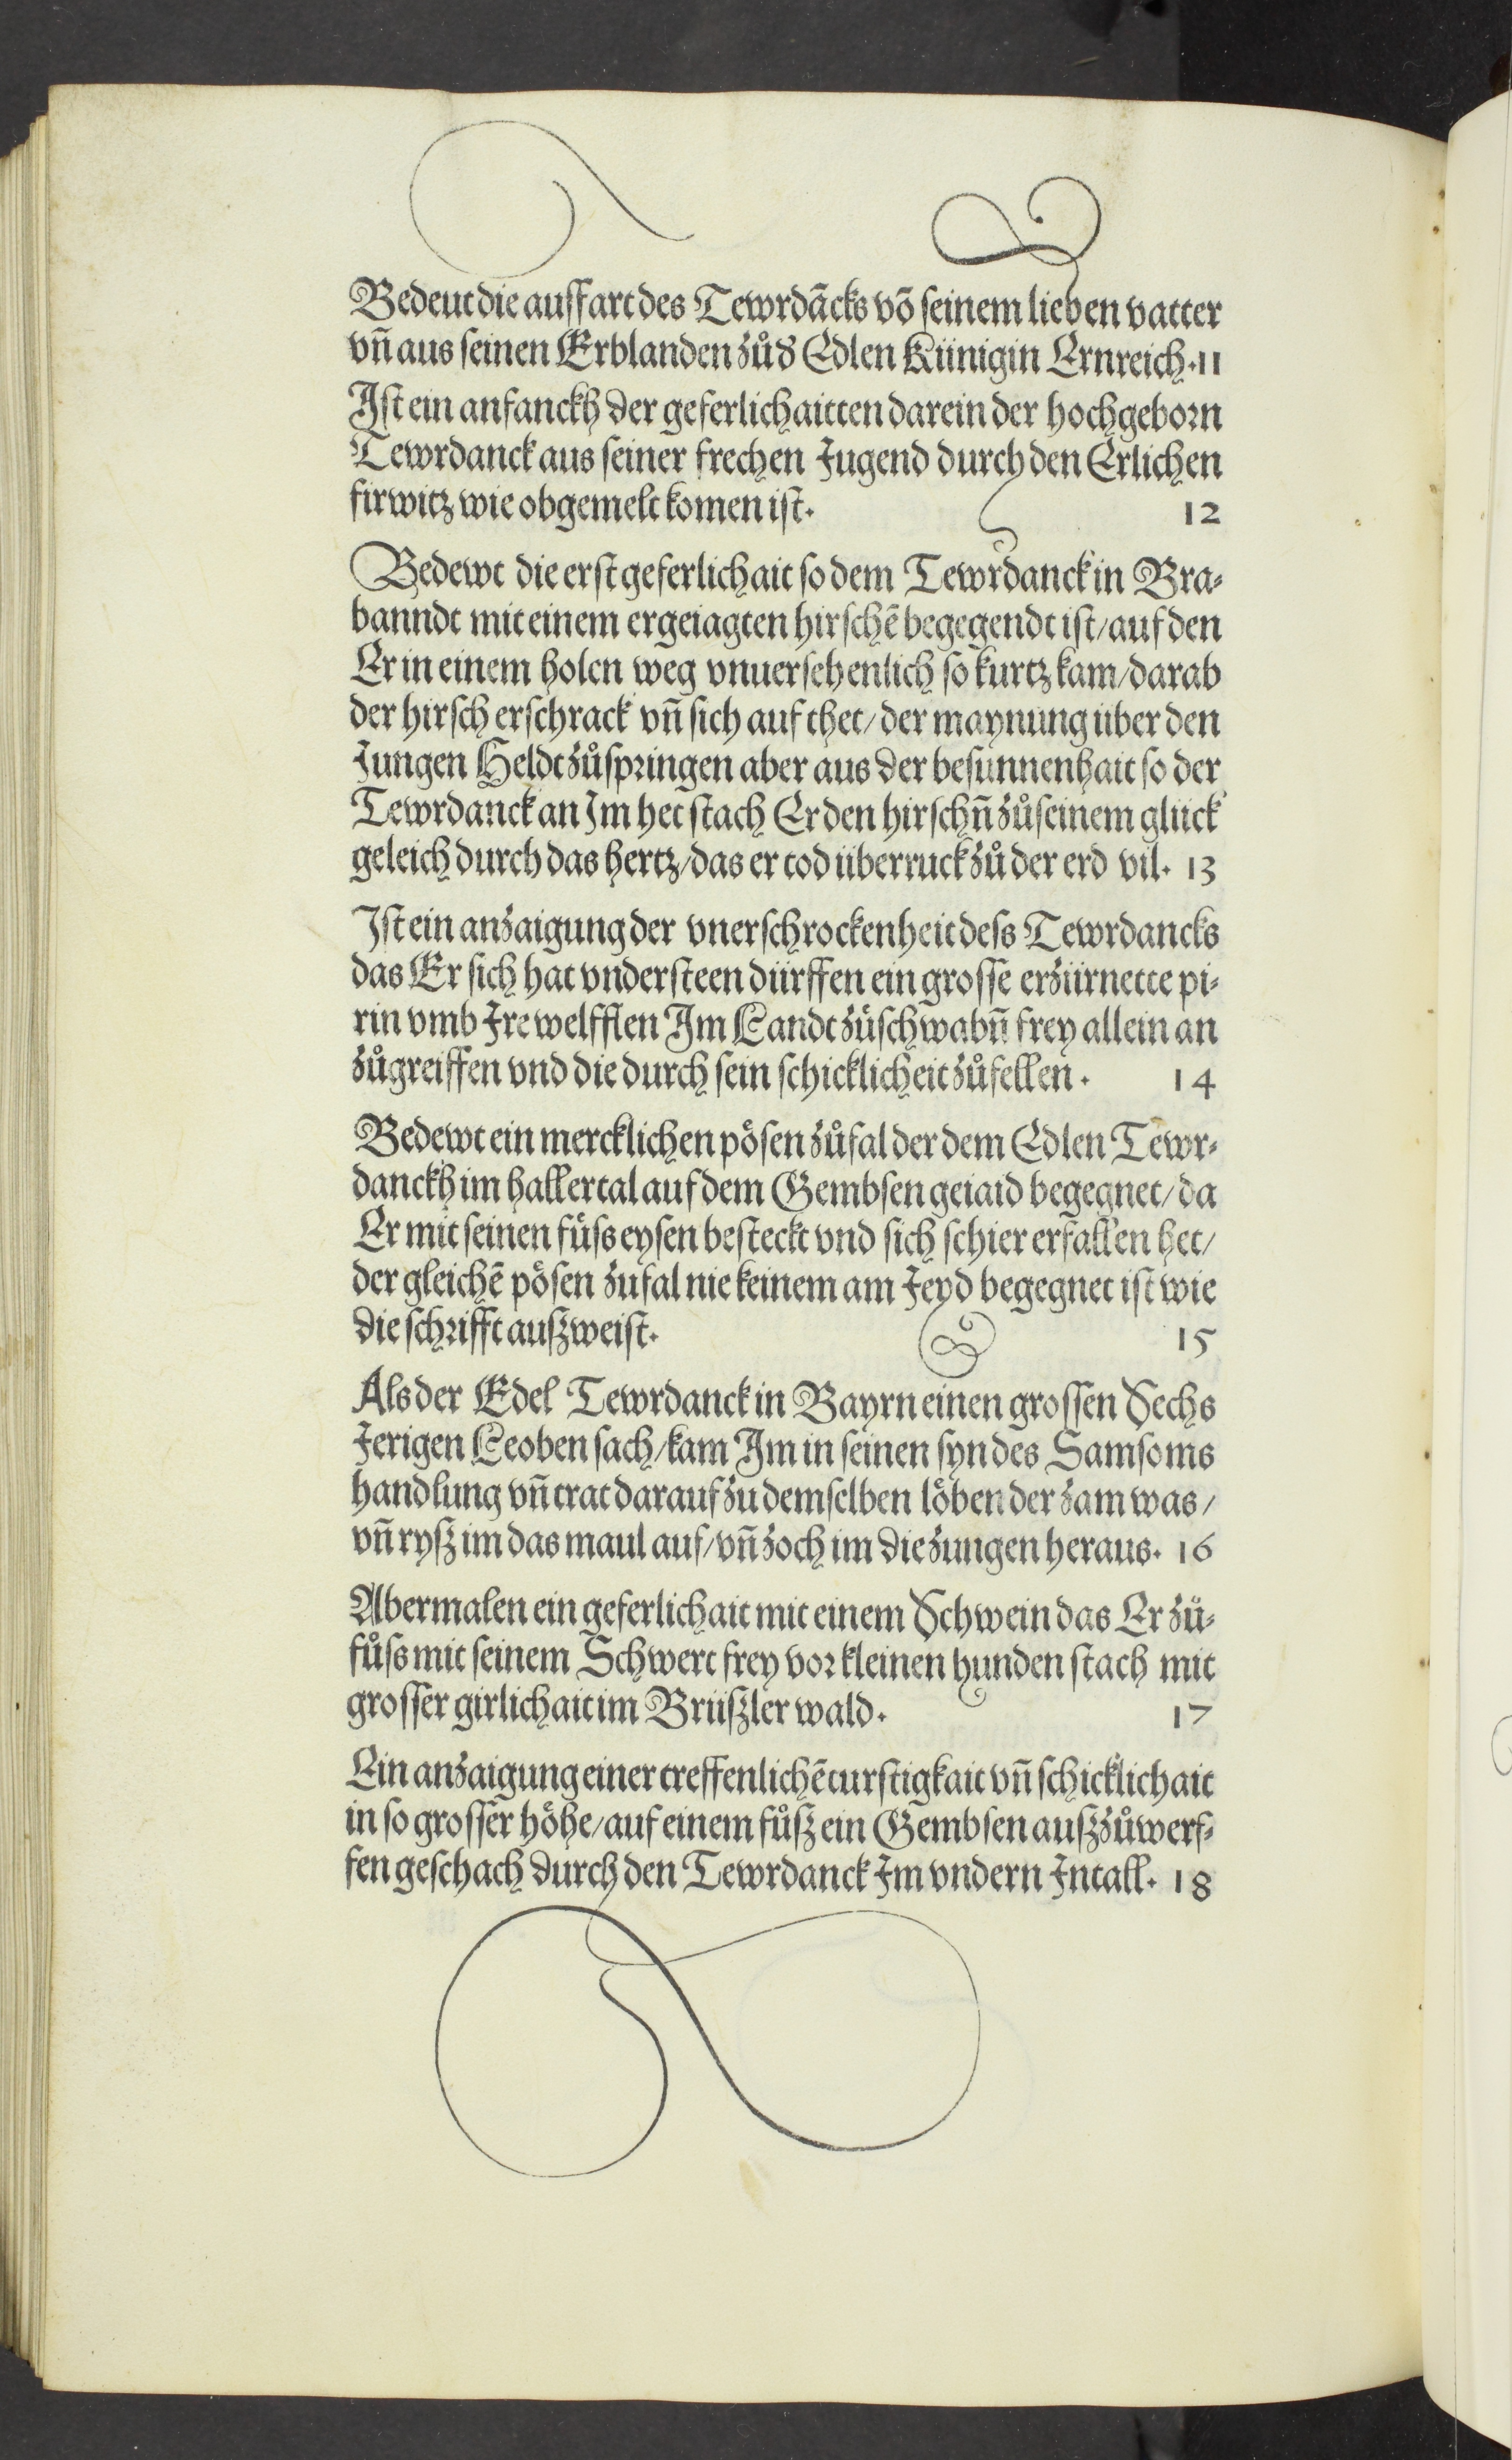 Bedeut die auffart des Tewrdācks vō seinem lieben vatter
vn̄ aus seinen Erblanden zůd̕ Edlen Künigin Ernreich. 11
Ist ein anfanckh der geferlichaitten darein der hochgeborn
Tewrdanck aus seiner frechen Jugend durch den Erlichen
firwitz wie obgemelt komen ist. 12
Bedewt die erst geferlichait so dem Tewrdanck in Bra-
banndt mit einem ergeiagten hirschē begegendt ist/ auf den
Er in einem holen weg vnuersehenlich so kurtz kam/ darab
der hirsch erschrack vn̄ sich auf thet/ der maynung über den
Jungen Heldt zůspringen aber aus der besunnenhait so der
Tewrdanck an Im het stach Er den hirschn̄ zůseinem glück
geleich durch das hertz/ das er tod überruck zů der erd vil. 13
Ist ein anzaigung der vnerschrockenheit dess Tewrdancks
das Er sich hat vndersteen dürffen ein grosse erzürnette pi-
rin vmb Jre welfflen Im Landt zůschwabn̄ frey allein an
zůgreiffen vnd die durch sein schicklicheit zůfellen. 14
Bedewt ein mercklichen pösen zůfal der dem Edlen Tewr-
danckh im hallertal auf dem Gembsen geiaid begegnet/ da
Er mit seinen füss eysen besteckt vnd sich schier erfallen het/
der gleichē pösen zufal nie keinem am Jeyd begegnet ist wie
die schrifft außweist. 15
Als der Edel Tewrdanck in Bayrn einen grossen Sechs
Jerigen Leoben sach/ kam Im in seinen syn des Samsoms
handlung vn̄ trat darauf zu demselben löben der zam was/
vn̄ ryß im das maul auf/ vn̄ zoch im die zungen heraus. 16
Abermalen ein geferlichait mit einem Schwein das Er zů-
fůss mit seinem Schwert frey vor kleinen hunden stach mit
grosser girlichait im Brüßler wald. 17
Ein anzaigung einer treffenlichē turstigkait vn̄ schicklichait
in so grosser höhe/ auf einem fůß ein Gembsen außzůwerf-
fen geschach durch den Tewrdanck Jm vndern Jntall. 18